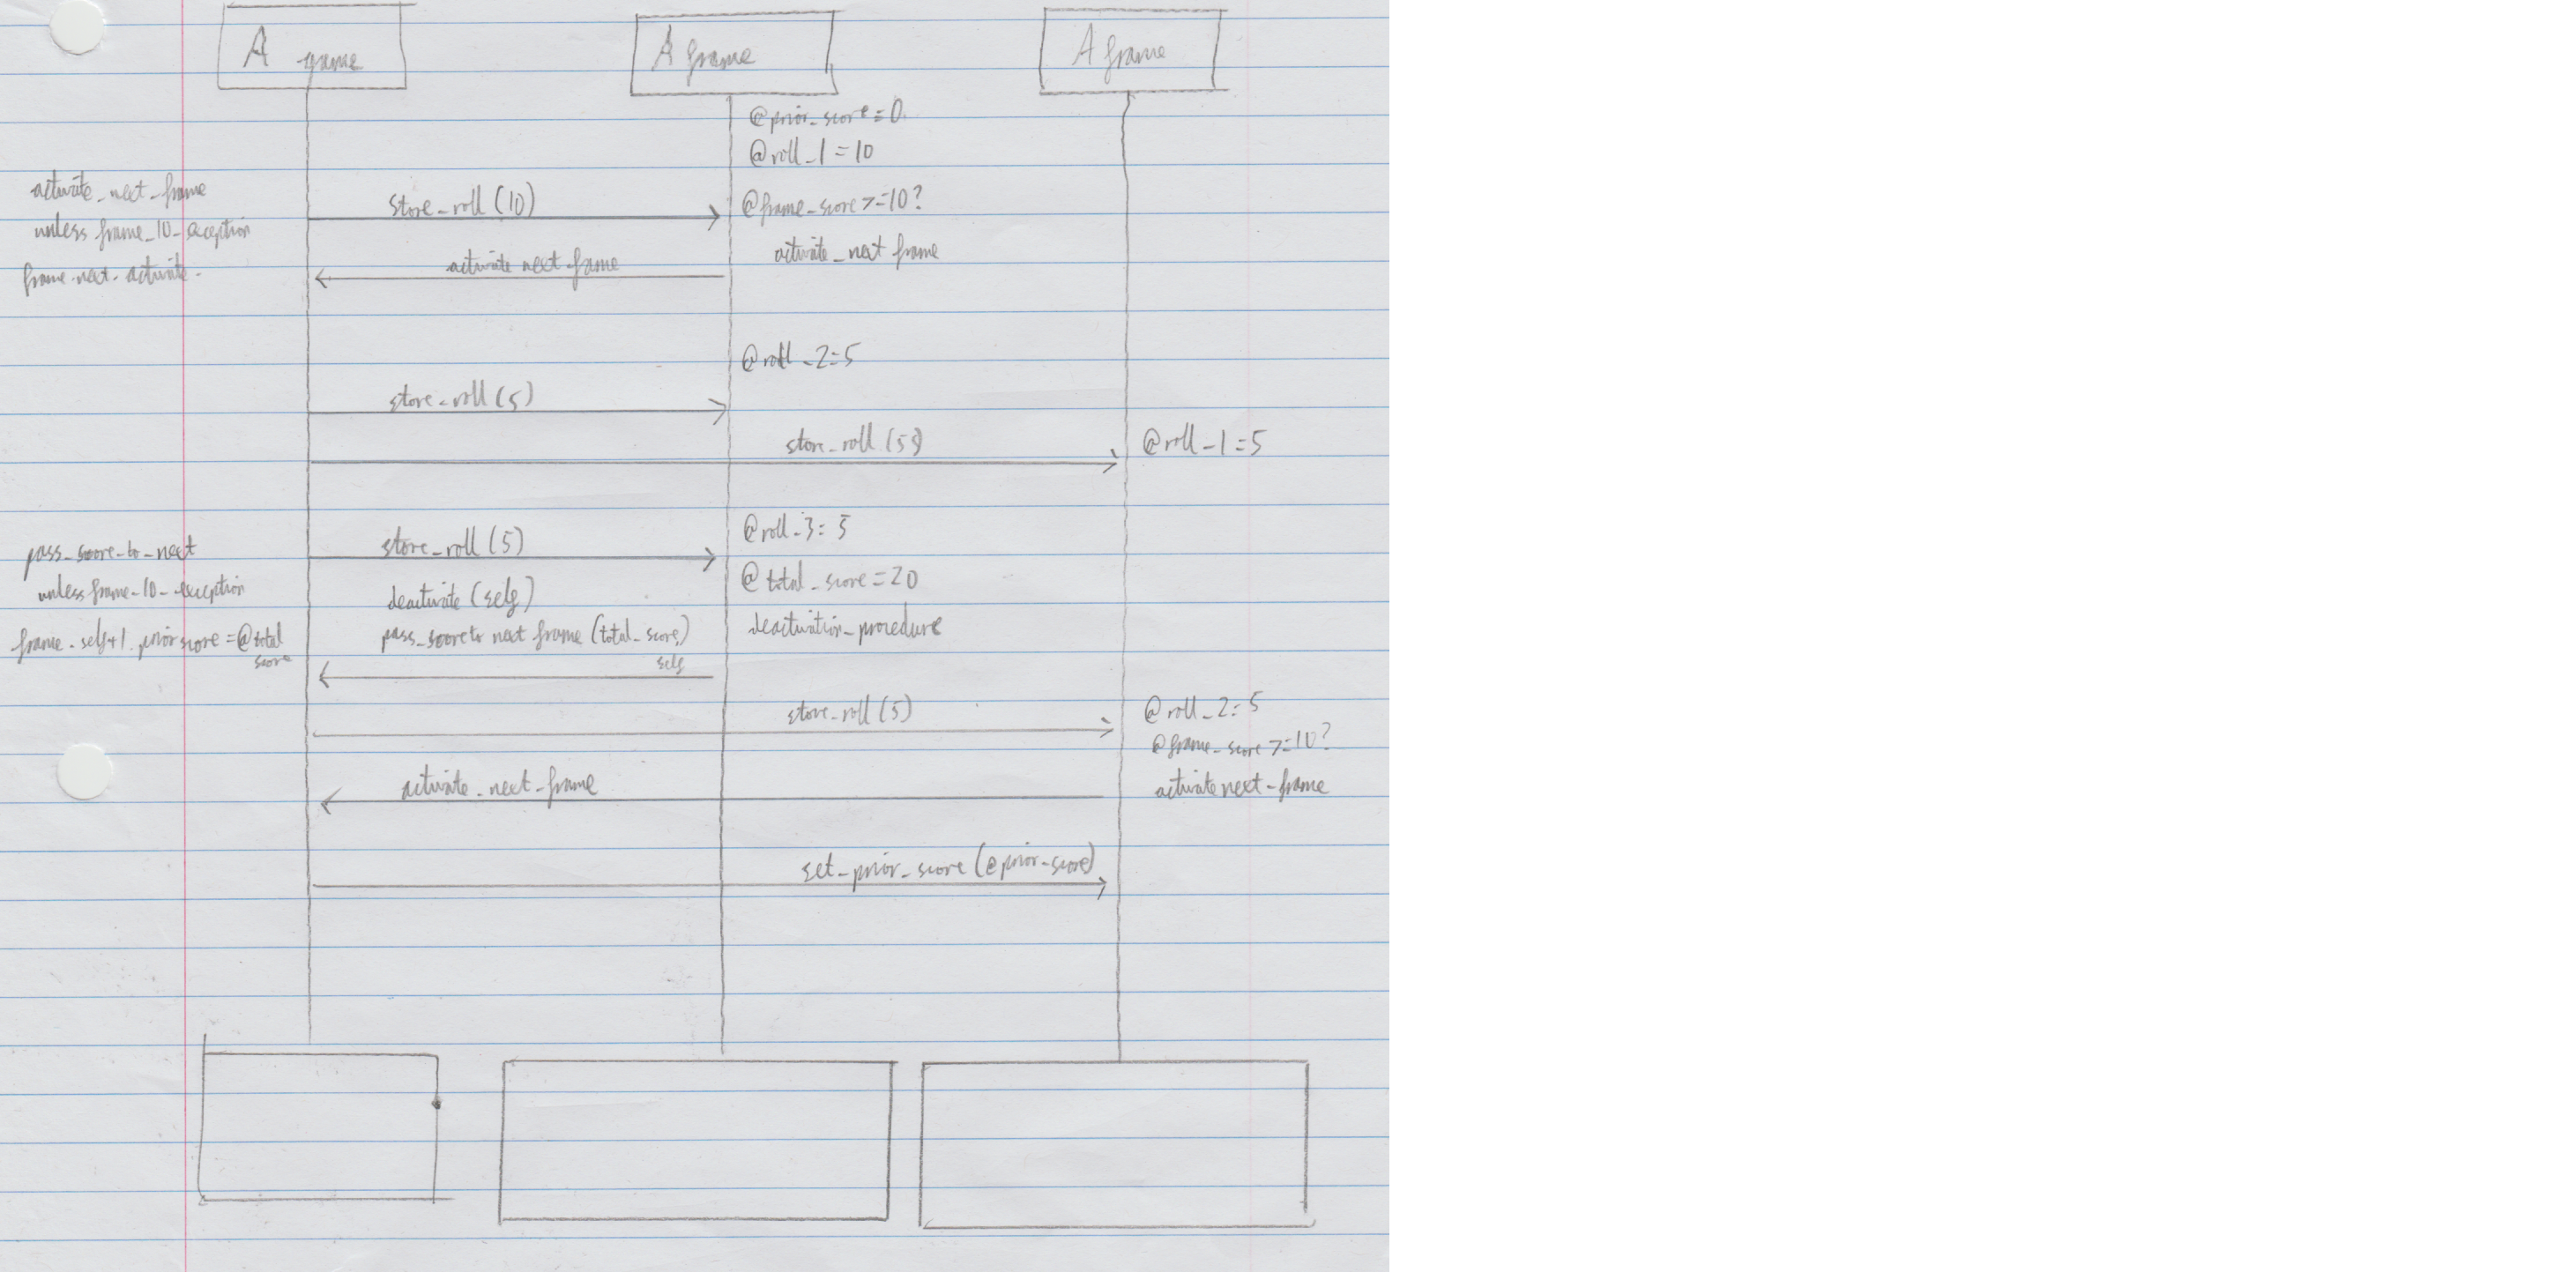 A game
A frame
A frame
@prior_score = 0
@roll_1 = 10
activate_next_frame
unless frame_10_exception
frame.next.activate.
store_roll (10)
@frame_score >= 10?
activate_next frame
activate next frame
@roll_2 = 5
store_roll (5)
store_roll (5)
@roll_1 = 5
pass_score_to_next
unless frame_10_exception
frame.self+1.prior score = @total
score
store_roll (5)
@roll_3 = 5
@total_score = 20
deactivate (self)
pass_score to next frame (total_score,)
self
deactivation_procedure
store_roll (5)
@roll_2 = 5
@frame_score >= 10?
activate next_frame
activate_next_frame
set_prior_score (@prior_score)